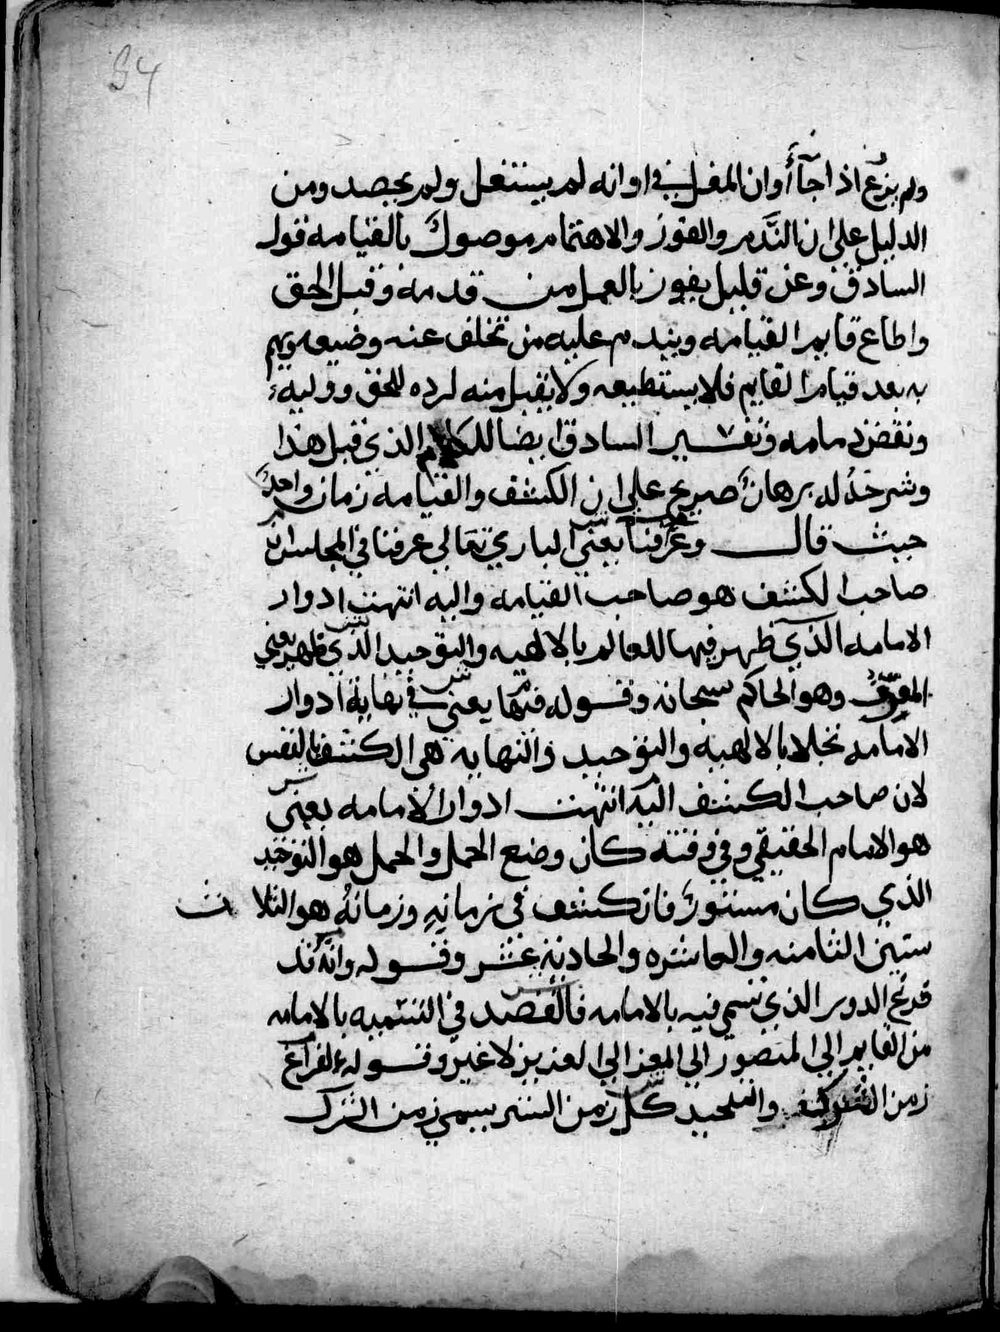 54
ولم يزع اذا جآ أوان المغل في اوانه لم يستغل ولم يحصد ومن
الدليل على ان النَّدم والفوز والاهتمام موصول بالقيامه قول
السادق وعن قليل يفوز بالعمل من قدمه وقبل الحق
واطاع قايم القيامه ويندم عليه من تخلف عنه وضيعه ويهم
به بعد قيام القايم فلا يستطيعه ولا يقبل منه لرده للحق ووليه
ونقض ذمامه وتفسير السادق ايضا للكلام الذي قبل هذا
وشرحهُ له برهانٌ صريح على ان الكشف والقيامه زمان واحدٌ
حيث قال وعرّفنا يعني الباري تعالى عرفنا في المجلس ان
صاحب الكشف هو صاحب القيامه واليه انتهت ادوار
الامامه الذي ظهر فيها للعالم بالالهيه والتوحيد الذي ظهر يعني
المعرّف وهو الحاكم سبحانه وقوله فيها يعني في نهاية ادوار
الامامه تجلا بالالهيه والتوحيد والنهايه هي الكشف بالنفس
لان صاحب الكشف اليه انتهت ادوار الامامه يعني
هو الامام الحقيقي وفي وقته كان وضع الحمل والحمل هو التوحيد
الذي كان مستورً فانكشف في زمانهِ وزمانهُ هو الثلاث
سنين الثامنه والعاشره والحادية عشر وقوله وانه قد
فرغ الدور الذي تسمى فيه بالامامه فالقصد في التسميه بالامامه
من القايم الى المنصور الى المعز الى العزيز لا غير وقوله لفراغ
زمن الشرك والتلحيد كل زمن الستر يسمى زمن الشرك